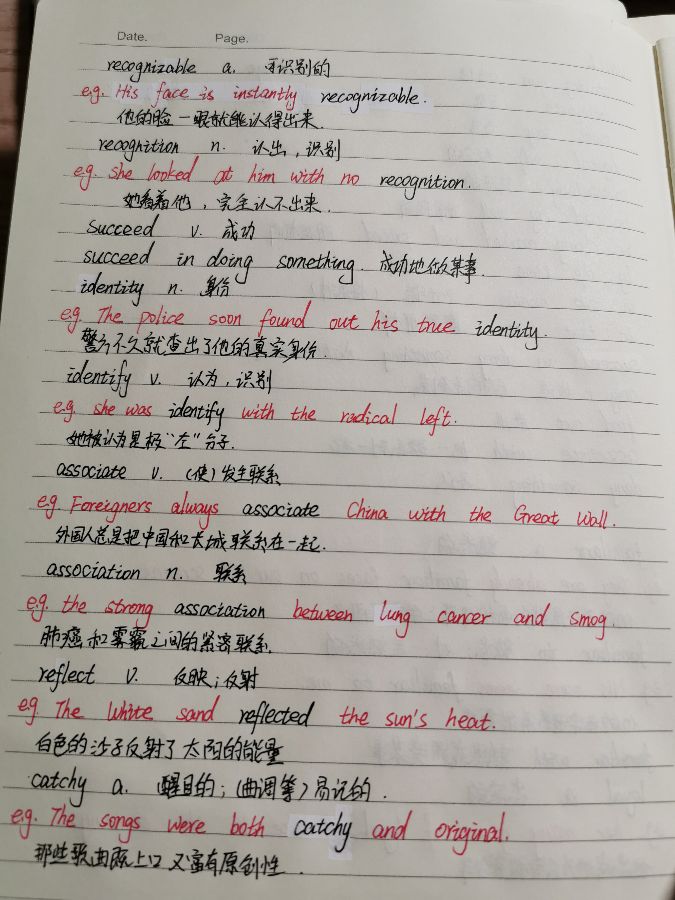 Date. Page.
recognizable a. 可识别的
e.g. His face is instantly recognizable.
他的脸一眼就能认得出来.
recognition n. 认出，识别
e.g. she looked at him with no recognition.
她看着他，完全认不出来.
succeed v. 成功
succeed in doing something. 成功地做某事.
identity n. 身份
e.g. The police soon found out his true identity.
警方不久就查出了他的真实身份.
identify v. 认为，识别
e.g. she was identify with the radical left.
她被认为是极“左”分子.
associate v. (使)发生联系
e.g. Foreigners always associate China with the Great Wall.
外国人总是把中国和长城联系在一起.
association n. 联系
e.g. the strong association between lung cancer and smog.
肺癌和雾霾之间的紧密联系.
reflect v. 反映；反射
e.g. The white sand reflected the sun's heat.
白色的沙子反射了太阳的能量
catchy a. 醒目的；(曲调等)易记的.
e.g. The songs were both catchy and original.
那些歌曲既上口又富有原创性.